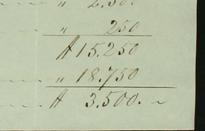 " 2.500.
" 250
₰ 15.250
" 18.750
₰ 3.500.